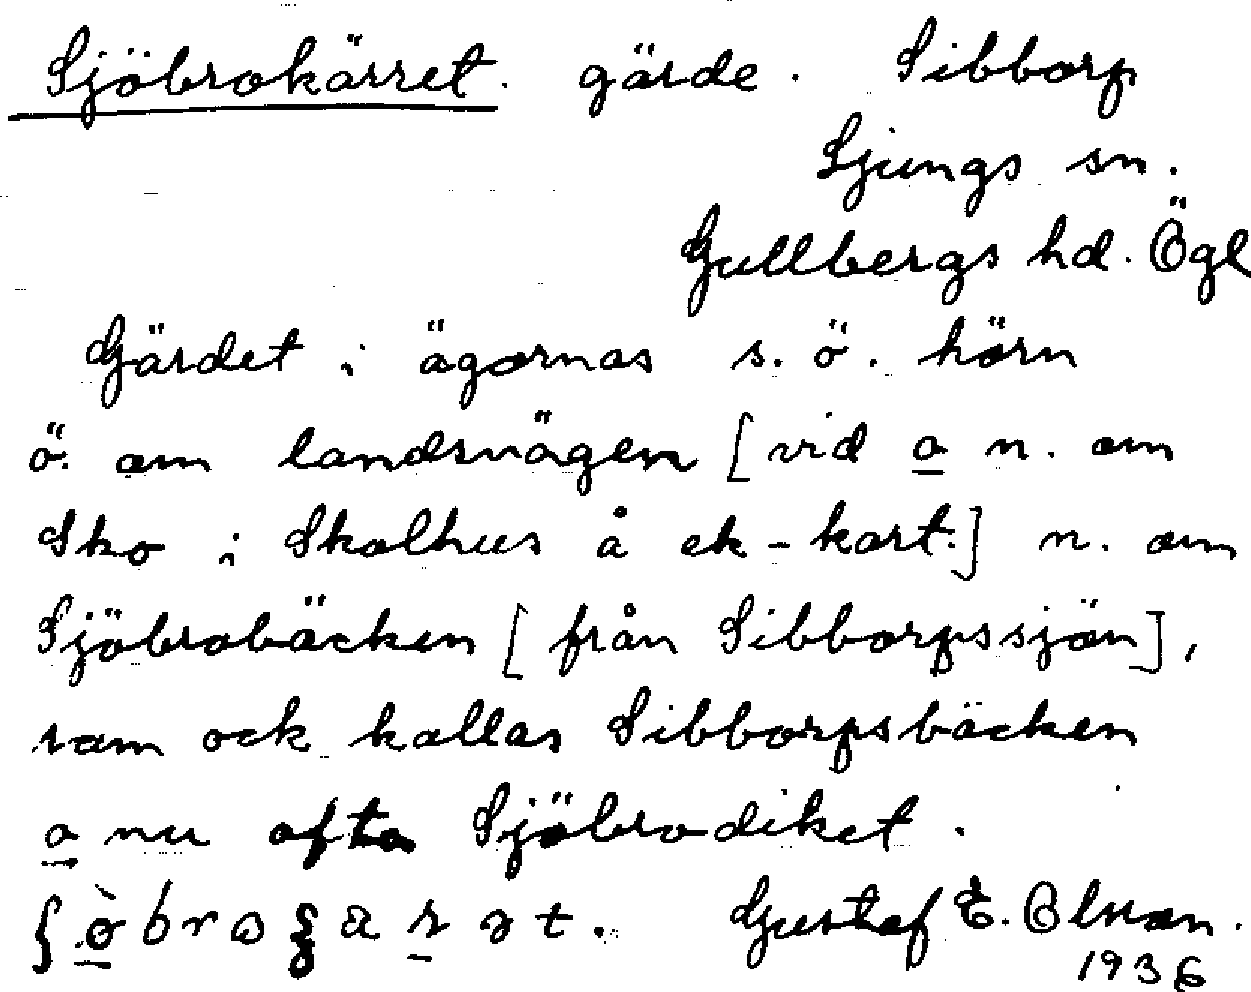 Sjöbrokärret. gärde. Sibborp
Ljungs sn.
Gullbergs hd. Ögl
Gärdet i ägornas s.ö. hörn
ö. om landsvägen [vid o n. om
Sko i Skolhus å ek-kart.] n. om
Sjöbrobäcken [från Sibborpssjön],
som ock kallas Sibborpsbäcken
o nu ofta Sjöbrodiket.
Gustaf E. Olsson.
1936